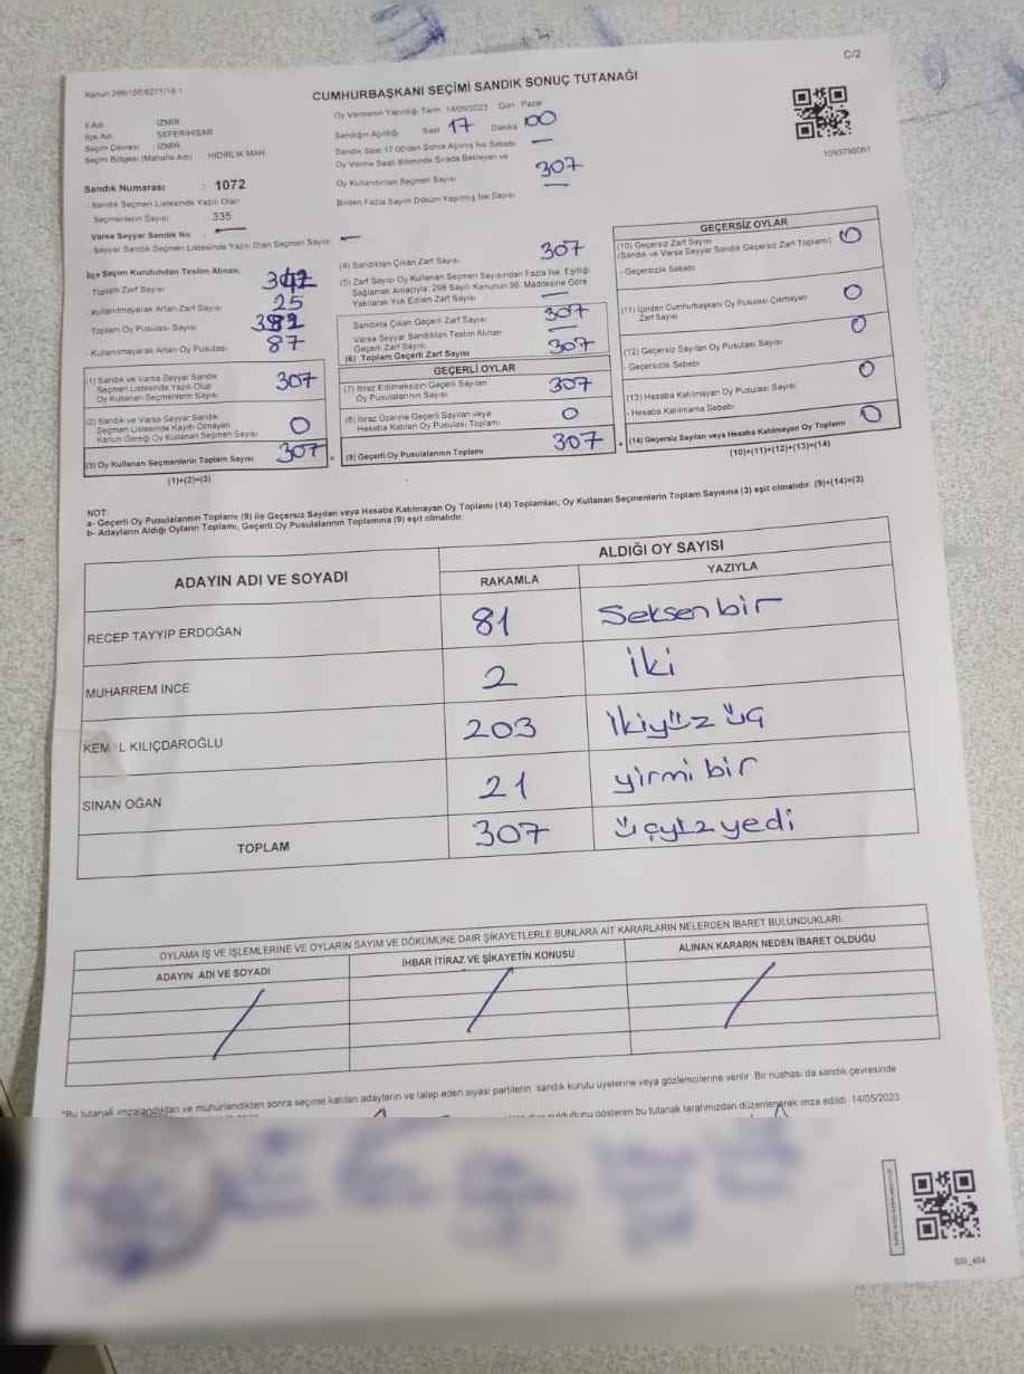 C/2
CUMHURBAŞKANI SEÇİMİ SANDIK SONUÇ TUTANAĞI
İl Adı İZMİR
İlçe Adı SEFERİHİSAR
Seçim Çevresi : İZMİR
Seçim Bölgesi (Mahalle Adı) HIDIRLIK MAH
Sandık Numarası : 1072
Sandık Seçmen Listesinde Yazılı Olan
Seçmenlerin Sayısı 335
Varsa Seyyar Sandık No
Seyyar Sandık Seçmen Listesinde Yazılı Olan Seçmen Sayısı
Oy Vermenin Yapıldığı Tarih 14/05/2023 Gün Pazar
Sandığın Açıldığı Saat 17 Dakika 00
Sandık Saat 17.00'den Sonra Açılmış İse Sebebi
Oy Verme Saati Bitiminde Sırada Bekleyen ve
Oy Kullandırılan Seçmen Sayısı 307
Birden Fazla Sayım Döküm Yapılmış İse Sayısı
İlçe Seçim Kurulundan Teslim Alınan,
Toplam Zarf Sayısı
Kullanılmayarak Artan Zarf Sayısı 25
Toplam Oy Pusulası Sayısı
Kullanılmayarak Artan Oy Pusulası 87
(1) Sandık ve Varsa Seyyar Sandık
Seçmen Listesinde Yazılı Olup
Oy Kullanan Seçmenlerin Sayısı 307
(2) Sandık ve Varsa Seyyar Sandık
Seçmen Listesinde Kayıtlı Olmayan
Kanun Gereği Oy Kullanan Seçmen Sayısı 0
(3) Oy Kullanan Seçmenlerin Toplam Sayısı 307
(1)+(2)=(3)
(4) Sandıktan Çıkan Zarf Sayısı 307
(5) Zarf Sayısı Oy Kullanan Seçmen Sayısından Fazla İse, Eşitliği
Sağlamak Amacıyla, 298 Sayılı Kanunun 98. Maddesine Göre
Yakılarak Yok Edilen Zarf Sayısı
Sandıkta Çıkan Geçerli Zarf Sayısı 307
Varsa Seyyar Sandıktan Teslim Alınan
Geçerli Zarf Sayısı
(6) Toplam Geçerli Zarf Sayısı 307
GEÇERLİ OYLAR
(7) İtiraz Edilmeksizin Geçerli Sayılan
Oy Pusulalarının Sayısı 307
(8) İtiraz Üzerine Geçerli Sayılan veya
Hesaba Katılan Oy Pusulası Toplamı 0
(9) Geçerli Oy Pusulalarının Toplamı 307
GEÇERSİZ OYLAR
(10) Geçersiz Zarf Sayısı
(Sandık ve Varsa Seyyar Sandık Geçersiz Zarf Toplamı) 0
- Geçersizlik Sebebi
(11) İçinden Cumhurbaşkanı Oy Pusulası Çıkmayan
Zarf Sayısı 0
(12) Geçersiz Sayılan Oy Pusulası Sayısı 0
- Geçersizlik Sebebi
(13) Hesaba Katılmayan Oy Pusulası Sayısı 0
- Hesaba Katılmama Sebebi
(14) Geçersiz Sayılan veya Hesaba Katılmayan Oy Toplamı 0
(10)+(11)+(12)+(13)=(14)
NOT:
a- Geçerli Oy Pusulalarının Toplamı (9) ile Geçersiz Sayılan veya Hesaba Katılmayan Oy Toplamı (14) Toplamları, Oy Kullanan Seçmenlerin Toplam Sayısına (3) eşit olmalıdır. (9)+(14)=(3)
b- Adayların Aldığı Oyların Toplamı, Geçerli Oy Pusulalarının Toplamına (9) eşit olmalıdır.
ADAYIN ADI VE SOYADI
ALDIĞI OY SAYISI
RAKAMLA YAZIYLA
RECEP TAYYİP ERDOĞAN 81 Seksen bir
MUHARREM İNCE 2 iki
KEM L KILIÇDAROĞLU 203 ikiyüz üç
SİNAN OĞAN 21 yirmi bir
TOPLAM 307 üçyüz yedi
OYLAMA İŞ VE İŞLEMLERİNE VE OYLARIN SAYIM VE DÖKÜMÜNE DAİR ŞİKAYETLERLE BUNLARA AİT KARARLARIN NELERDEN İBARET BULUNDUKLARI
ADAYIN ADI VE SOYADI
İHBAR İTİRAZ VE ŞİKAYETİN KONUSU
ALINAN KARARIN NEDEN İBARET OLDUĞU
*Bu tutanak imzalandıktan ve mühürlendikten sonra seçime katılan adayların ve talep eden siyasi partilerin sandık kurulu üyelerine veya gözlemcilerine verilir. Bir nüshası da sandık çevresinde
olduğunu gösteren bu tutanak tarafımızdan düzenlenerek imza edildi. 14/05/2023